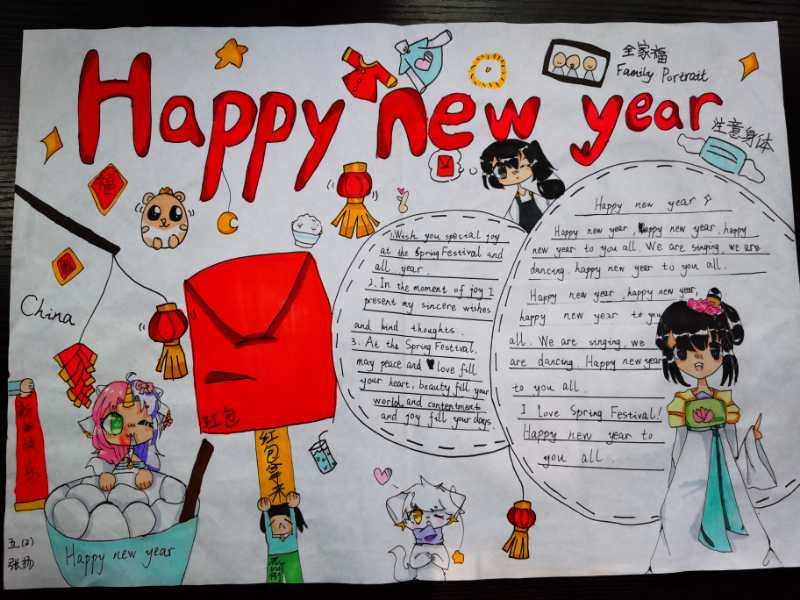 Happy new year
全家福
Family Portrait
注意身体
福
China
新年快乐
红包
红包拿来
Happy new year
五(2)
张扬
1. Wish you special joy
at the Spring Festival and
all year.
2. In the moment of joy I
present my sincere wishes
and kind thoughts.
3. At the Spring Festival,
may peace and love fill
your heart, beauty fill your
world, and contentment
and joy fill your days.
Happy new year
Happy new year, happy new year, happy
new year to you all. We are singing, we are
dancing, happy new year to you all.
Happy new year, happy new year,
happy new year to you
all. We are singing, we
are dancing. Happy new year
to you all.
I love Spring Festival!
Happy new year to
you all.